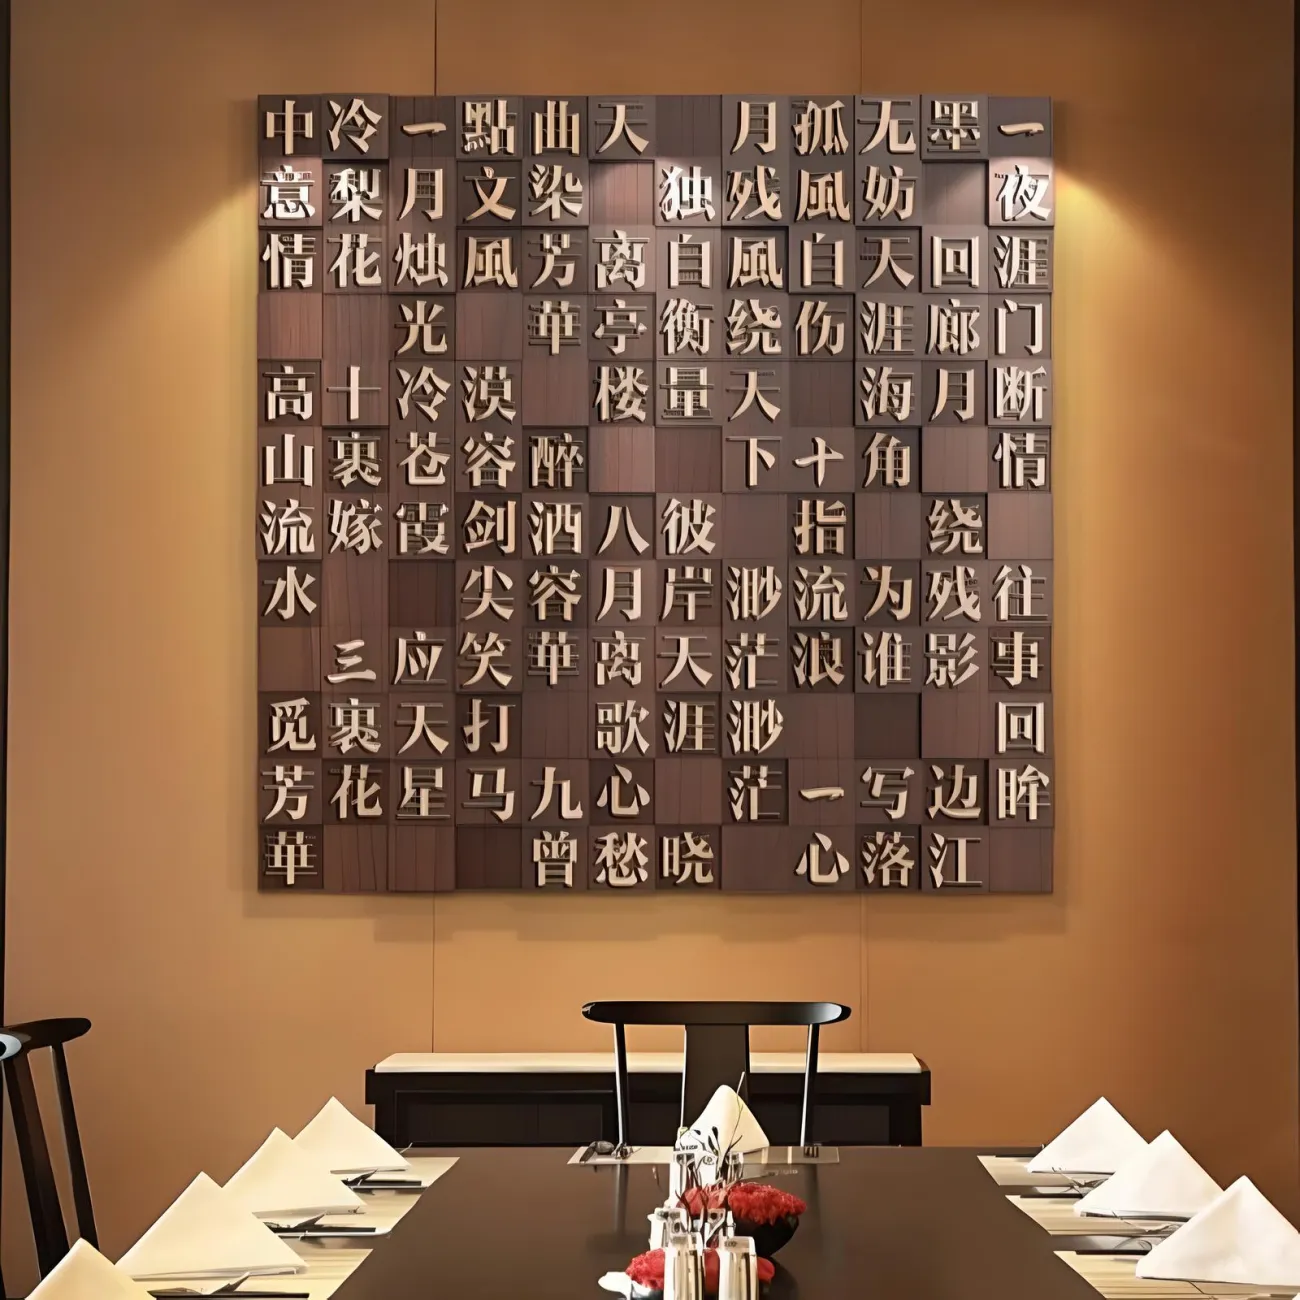 一夜涯门断情 往事回眸
墨 回廊月 绕残影 边江
无妨天涯海角 为谁 写落
孤風自伤 十指流浪 一心
月残風绕天下 渺茫渺茫
独自衡量 彼岸天涯 晓
天 离亭楼 八月离歌心愁
曲染芳華 醉洒容華 九曾
點文風 漠容剑尖笑打马
一月烛光冷苍霞 应天星
冷梨花 十裹嫁 三裹花
中意情 高山流水 觅芳華